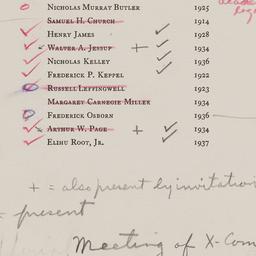 Nicholas Murray Butler 1925
Samuel H. Church 1914
Henry James ✓ 1928
Walter A. Jessup + ✓ 1934
Nicholas Kelley ✓ 1936
Frederick P. Keppel ✓ 1922
Russell Leffingwell 1923
Margaret Carnegie Miller 1934
Frederick Osborn 1936
Arthur W. Page + ✓ 1934
Elihu Root, Jr. ✓ 1937
+ = also present by invitation
= present
Meeting of X-Com